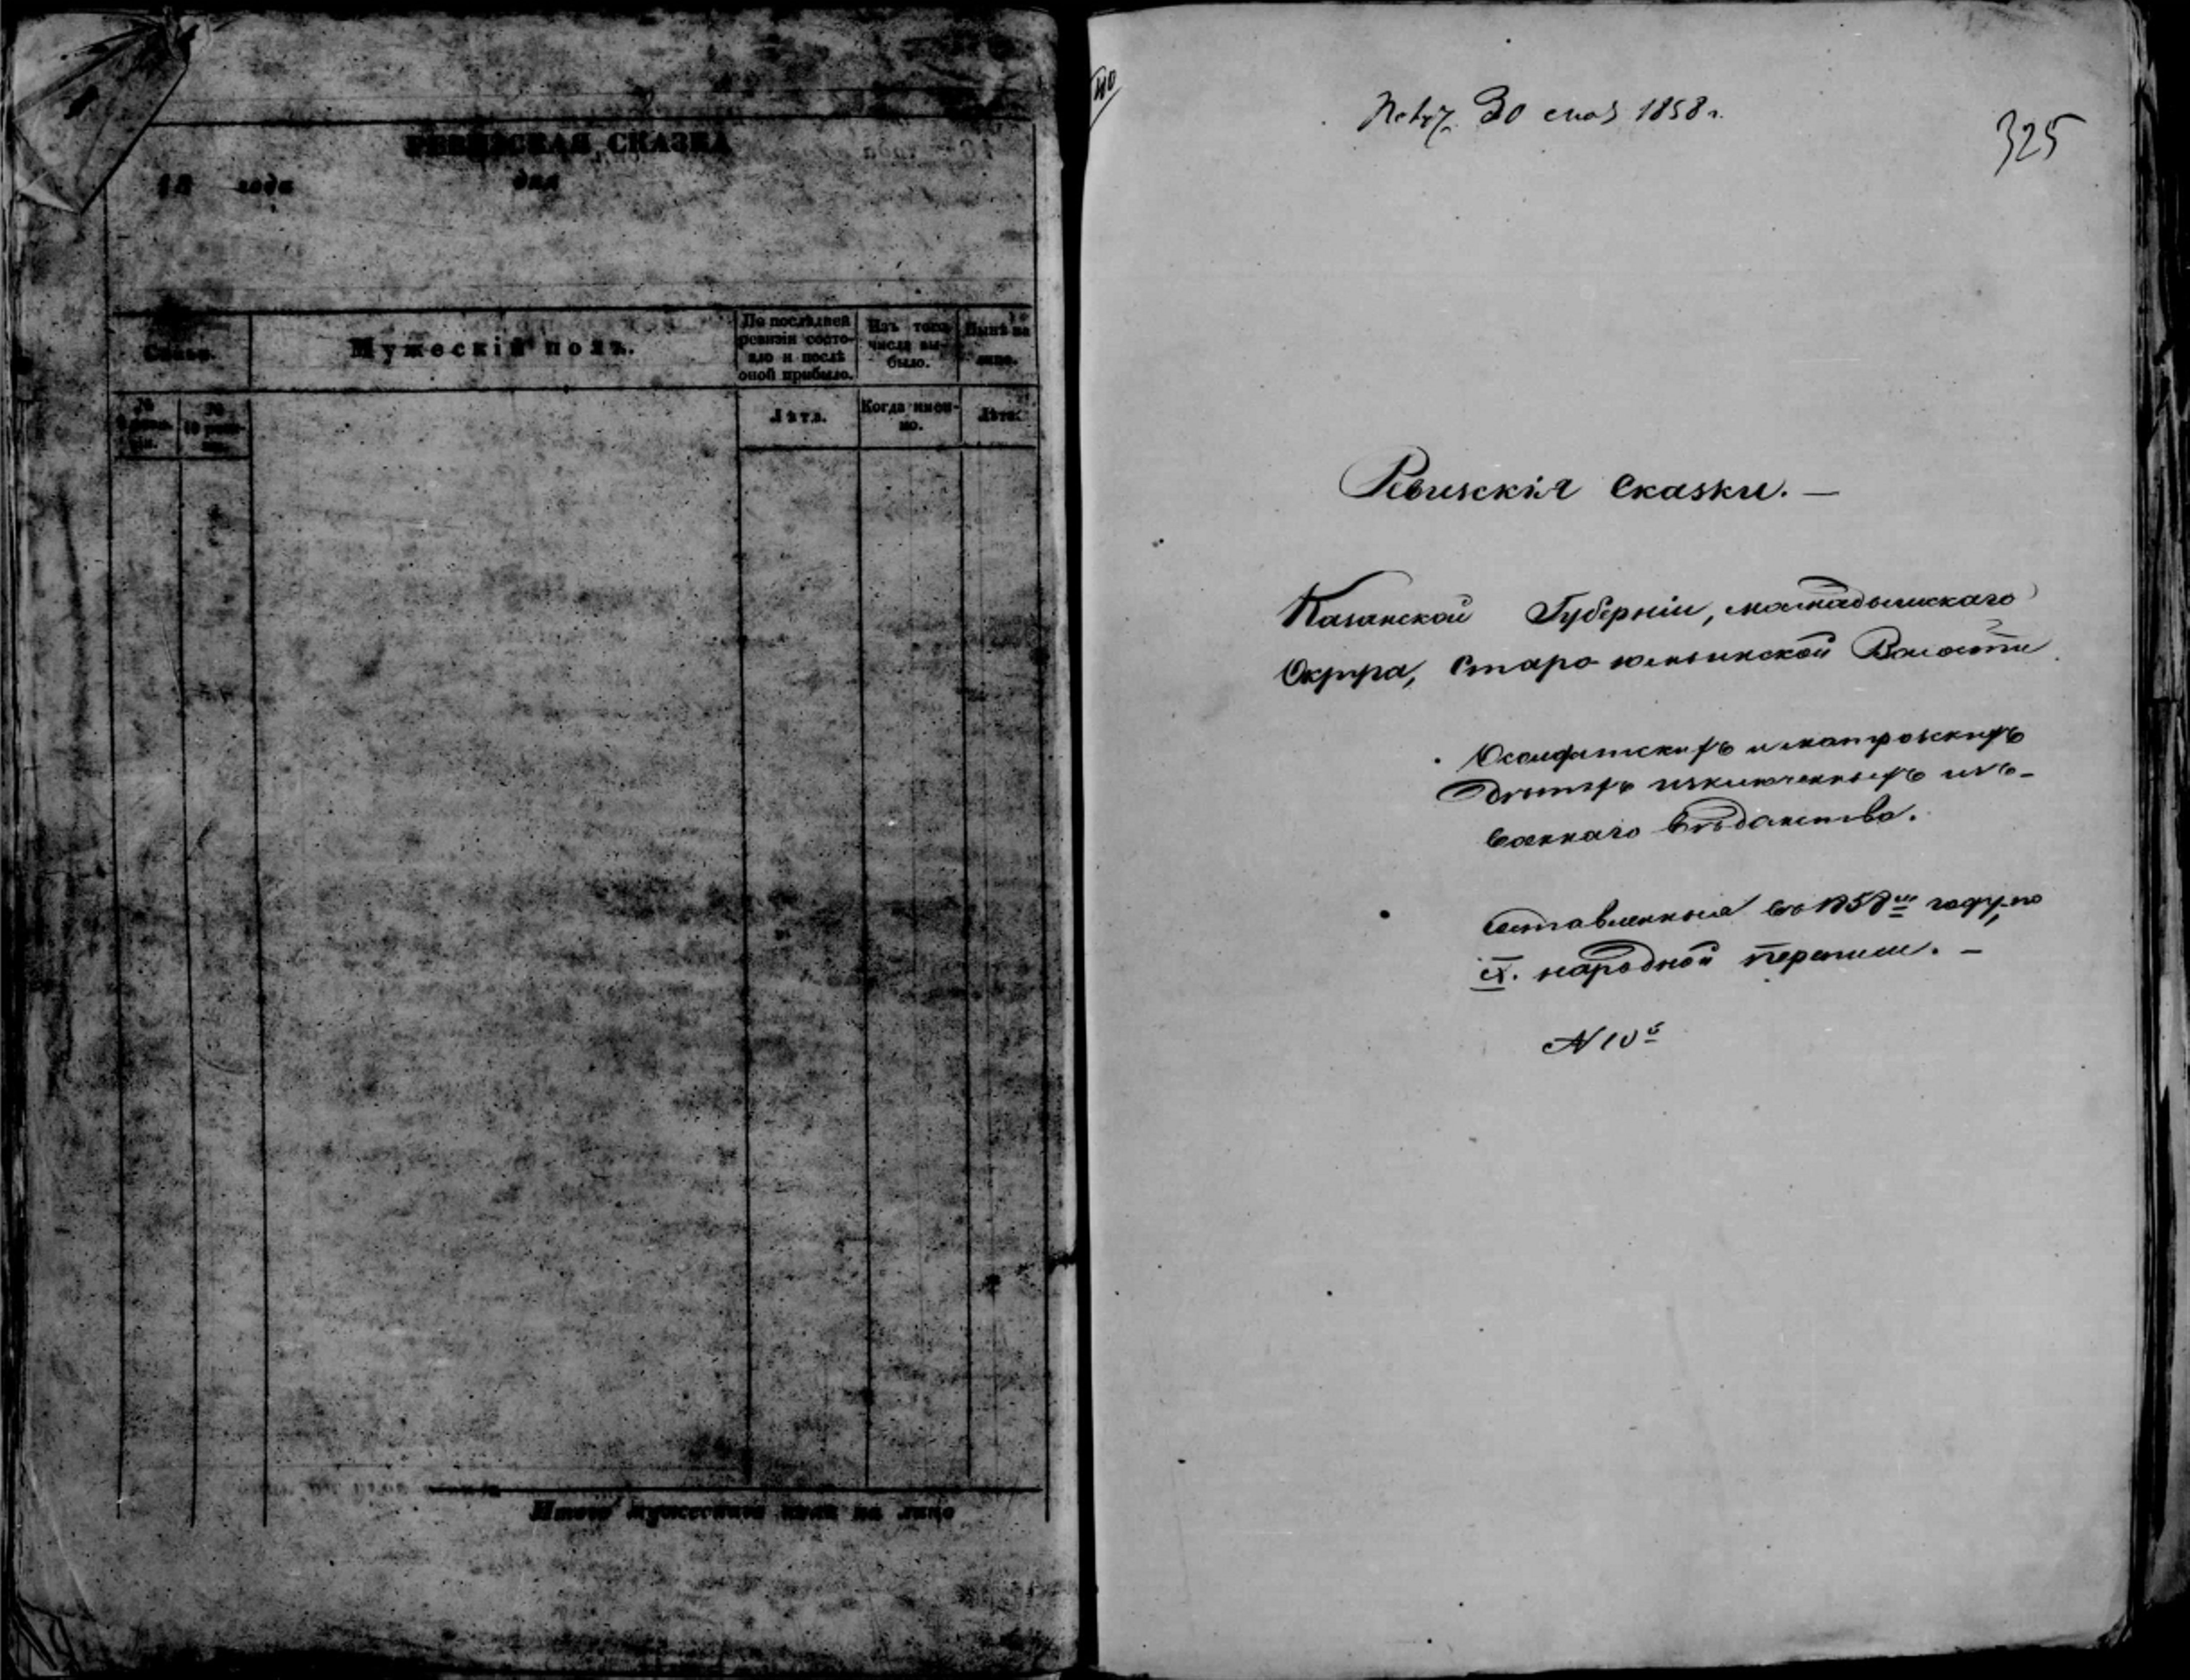 РЕВИЗСКАЯ СКАЗКА
18 года
дня
Семьи.
Мужескій полъ.
По послѣдней
ревизіи состо-
яло и послѣ
оной прибыло.
Изъ того
числа вы-
было.
Нынѣ на
лицо.
Лѣта.
Когда имен-
но.
Лѣта.
Итого мужескаго пола на лицо
40
30 мая 1858 г.
325
Ревизскія Сказки. —
Казанской Губерніи, мамадышскаго
Округа, Старо юмьинской Волости
Солдатскихъ и матроскихъ
Дѣтяхъ изключенныхъ изъ-
военнаго вѣдомства.
Составленныя въ 1858 м году, по
X. народной переписи. —
N 10 й